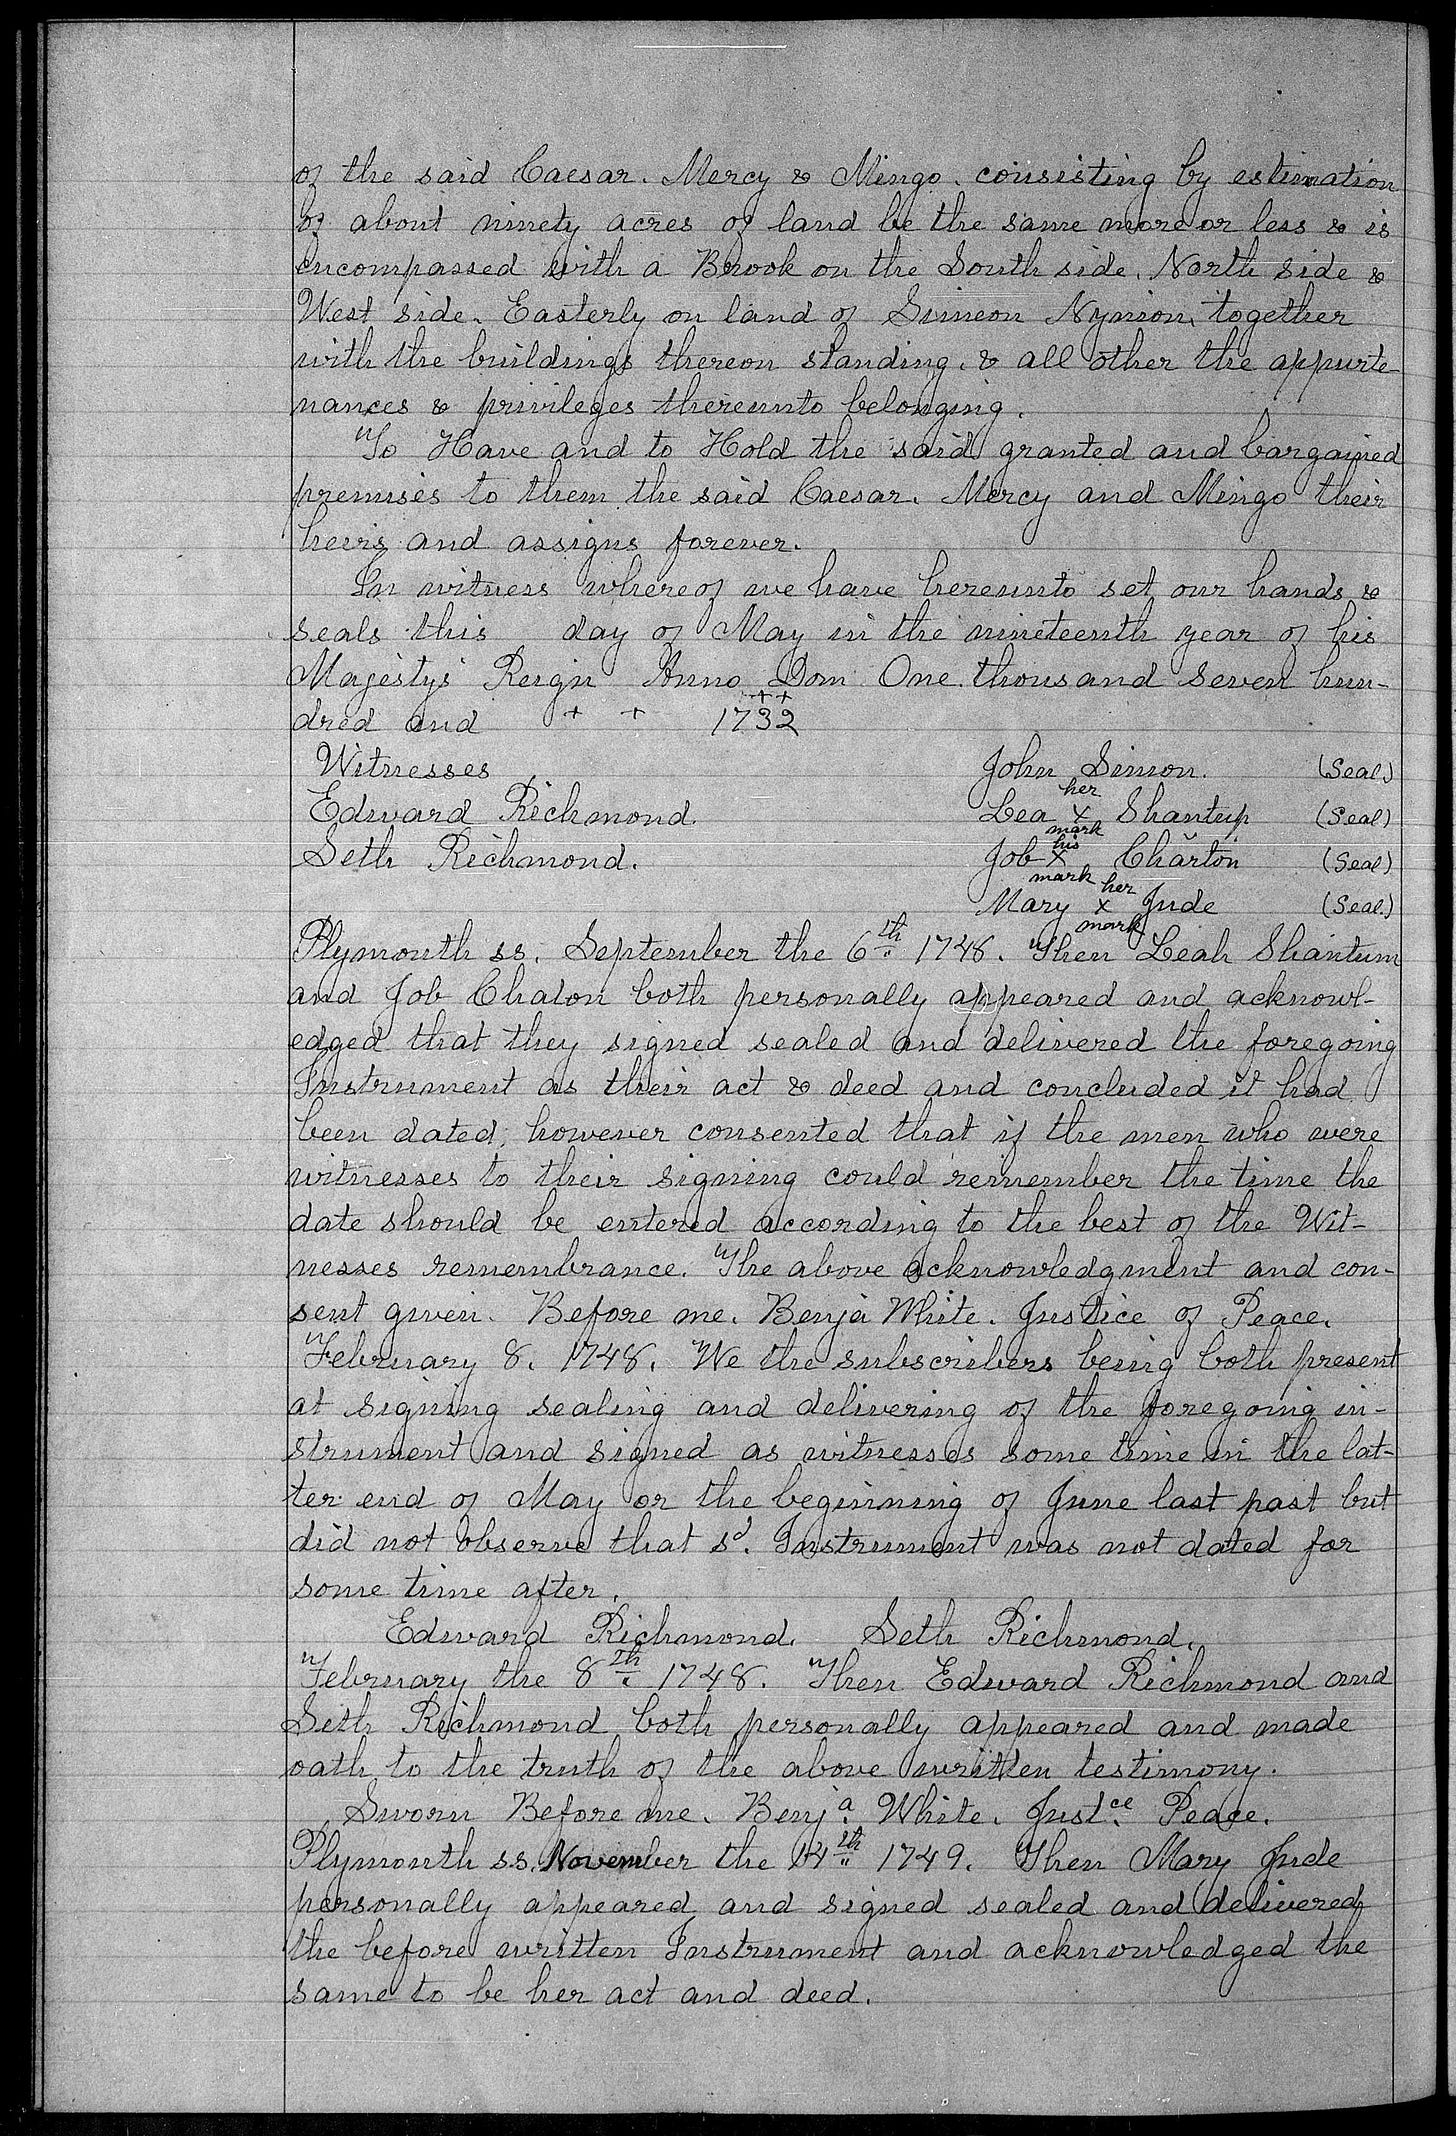 of the said Caesar. Mercy & Mingo. consisting by estimation
of about ninety acres of land be the same more or less & is
encompassed with a Brook on the South side. North side &
West side. Easterly on land of Simeon Nynion, together
with the buildings thereon standing. & all other the appurte-
nances & privileges thereunto belonging.
To Have and to Hold the said granted and bargained
premises to them the said Caesar. Mercy and Mingo their
heirs and assigns forever.
In witness whereof we have hereunto set our hands &
seals this day of May in the nineteenth year of his
Majestys Reign Anno Dom One thousand Seven hun-
dred and + + 1732
++
Witnesses John Simon. (Seal.)
Edward Richmond. Lea her x mark Shantup (Seal)
Seth Richmond. Job his x mark Charton (Seal)
Mary her x mark Jude (Seal.)
Plymouth ss. September the 6th 1748. Then Leah Shantum
and Job Chaton both personally appeared and acknowl-
edged that they signed sealed and delivered the foregoing
Instrument as their act & deed and concluded it had
been dated, however consented that if the men who were
witnesses to their signing could remember the time the
date should be entered according to the best of the Wit-
nesses remembrance. The above acknowledgment and con-
sent given. Before me. Benja White. Justice of Peace.
February 8. 1748. We the subscribers being both present
at signing sealing and delivering of the foregoing in-
strument and signed as witnesses some time in the lat-
ter end of May or the beginning of June last past but
did not observe that sd. Instrument was not dated for
some time after.
Edward Richmond. Seth Richmond.
February the 8th 1748. Then Edward Richmond and
Seth Richmond both personally appeared and made
oath to the truth of the above written testimony.
Sworn Before me. Benja. White. Justce. Peace.
Plymouth ss. November the 14th 1749. Then Mary Jude
personally appeared and signed sealed and delivered
the before written Instrument and acknowledged the
same to be her act and deed.